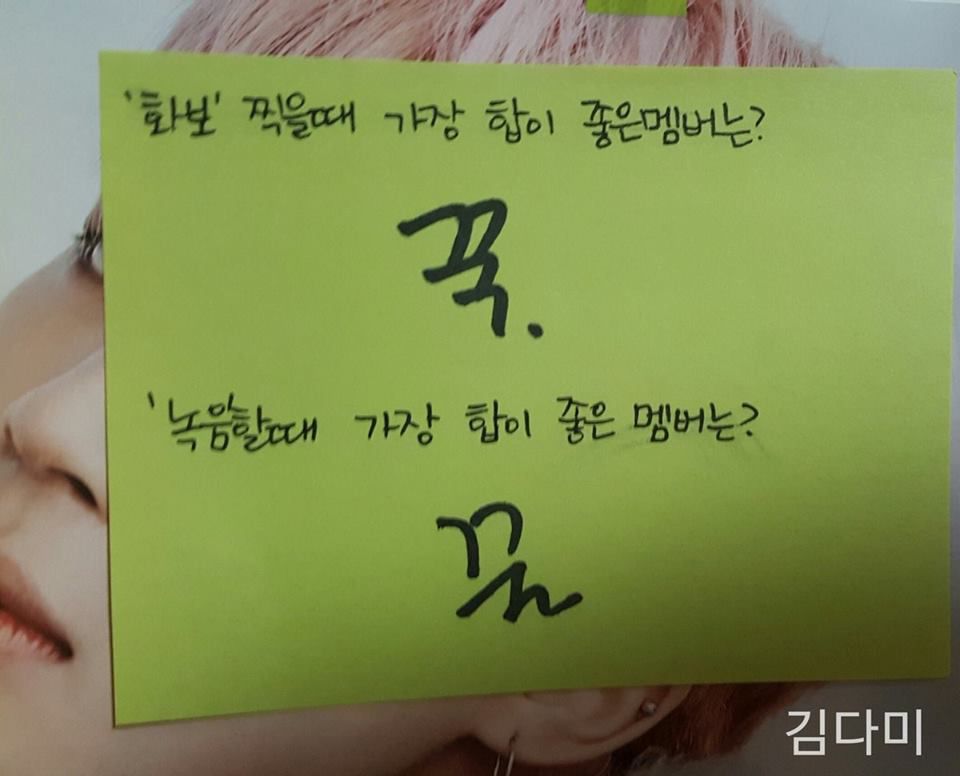 '화보' 찍을때 가장 합이 좋은멤버는?
꾹.
'녹음할때 가장 합이 좋은 멤버는?
꾹
김다미